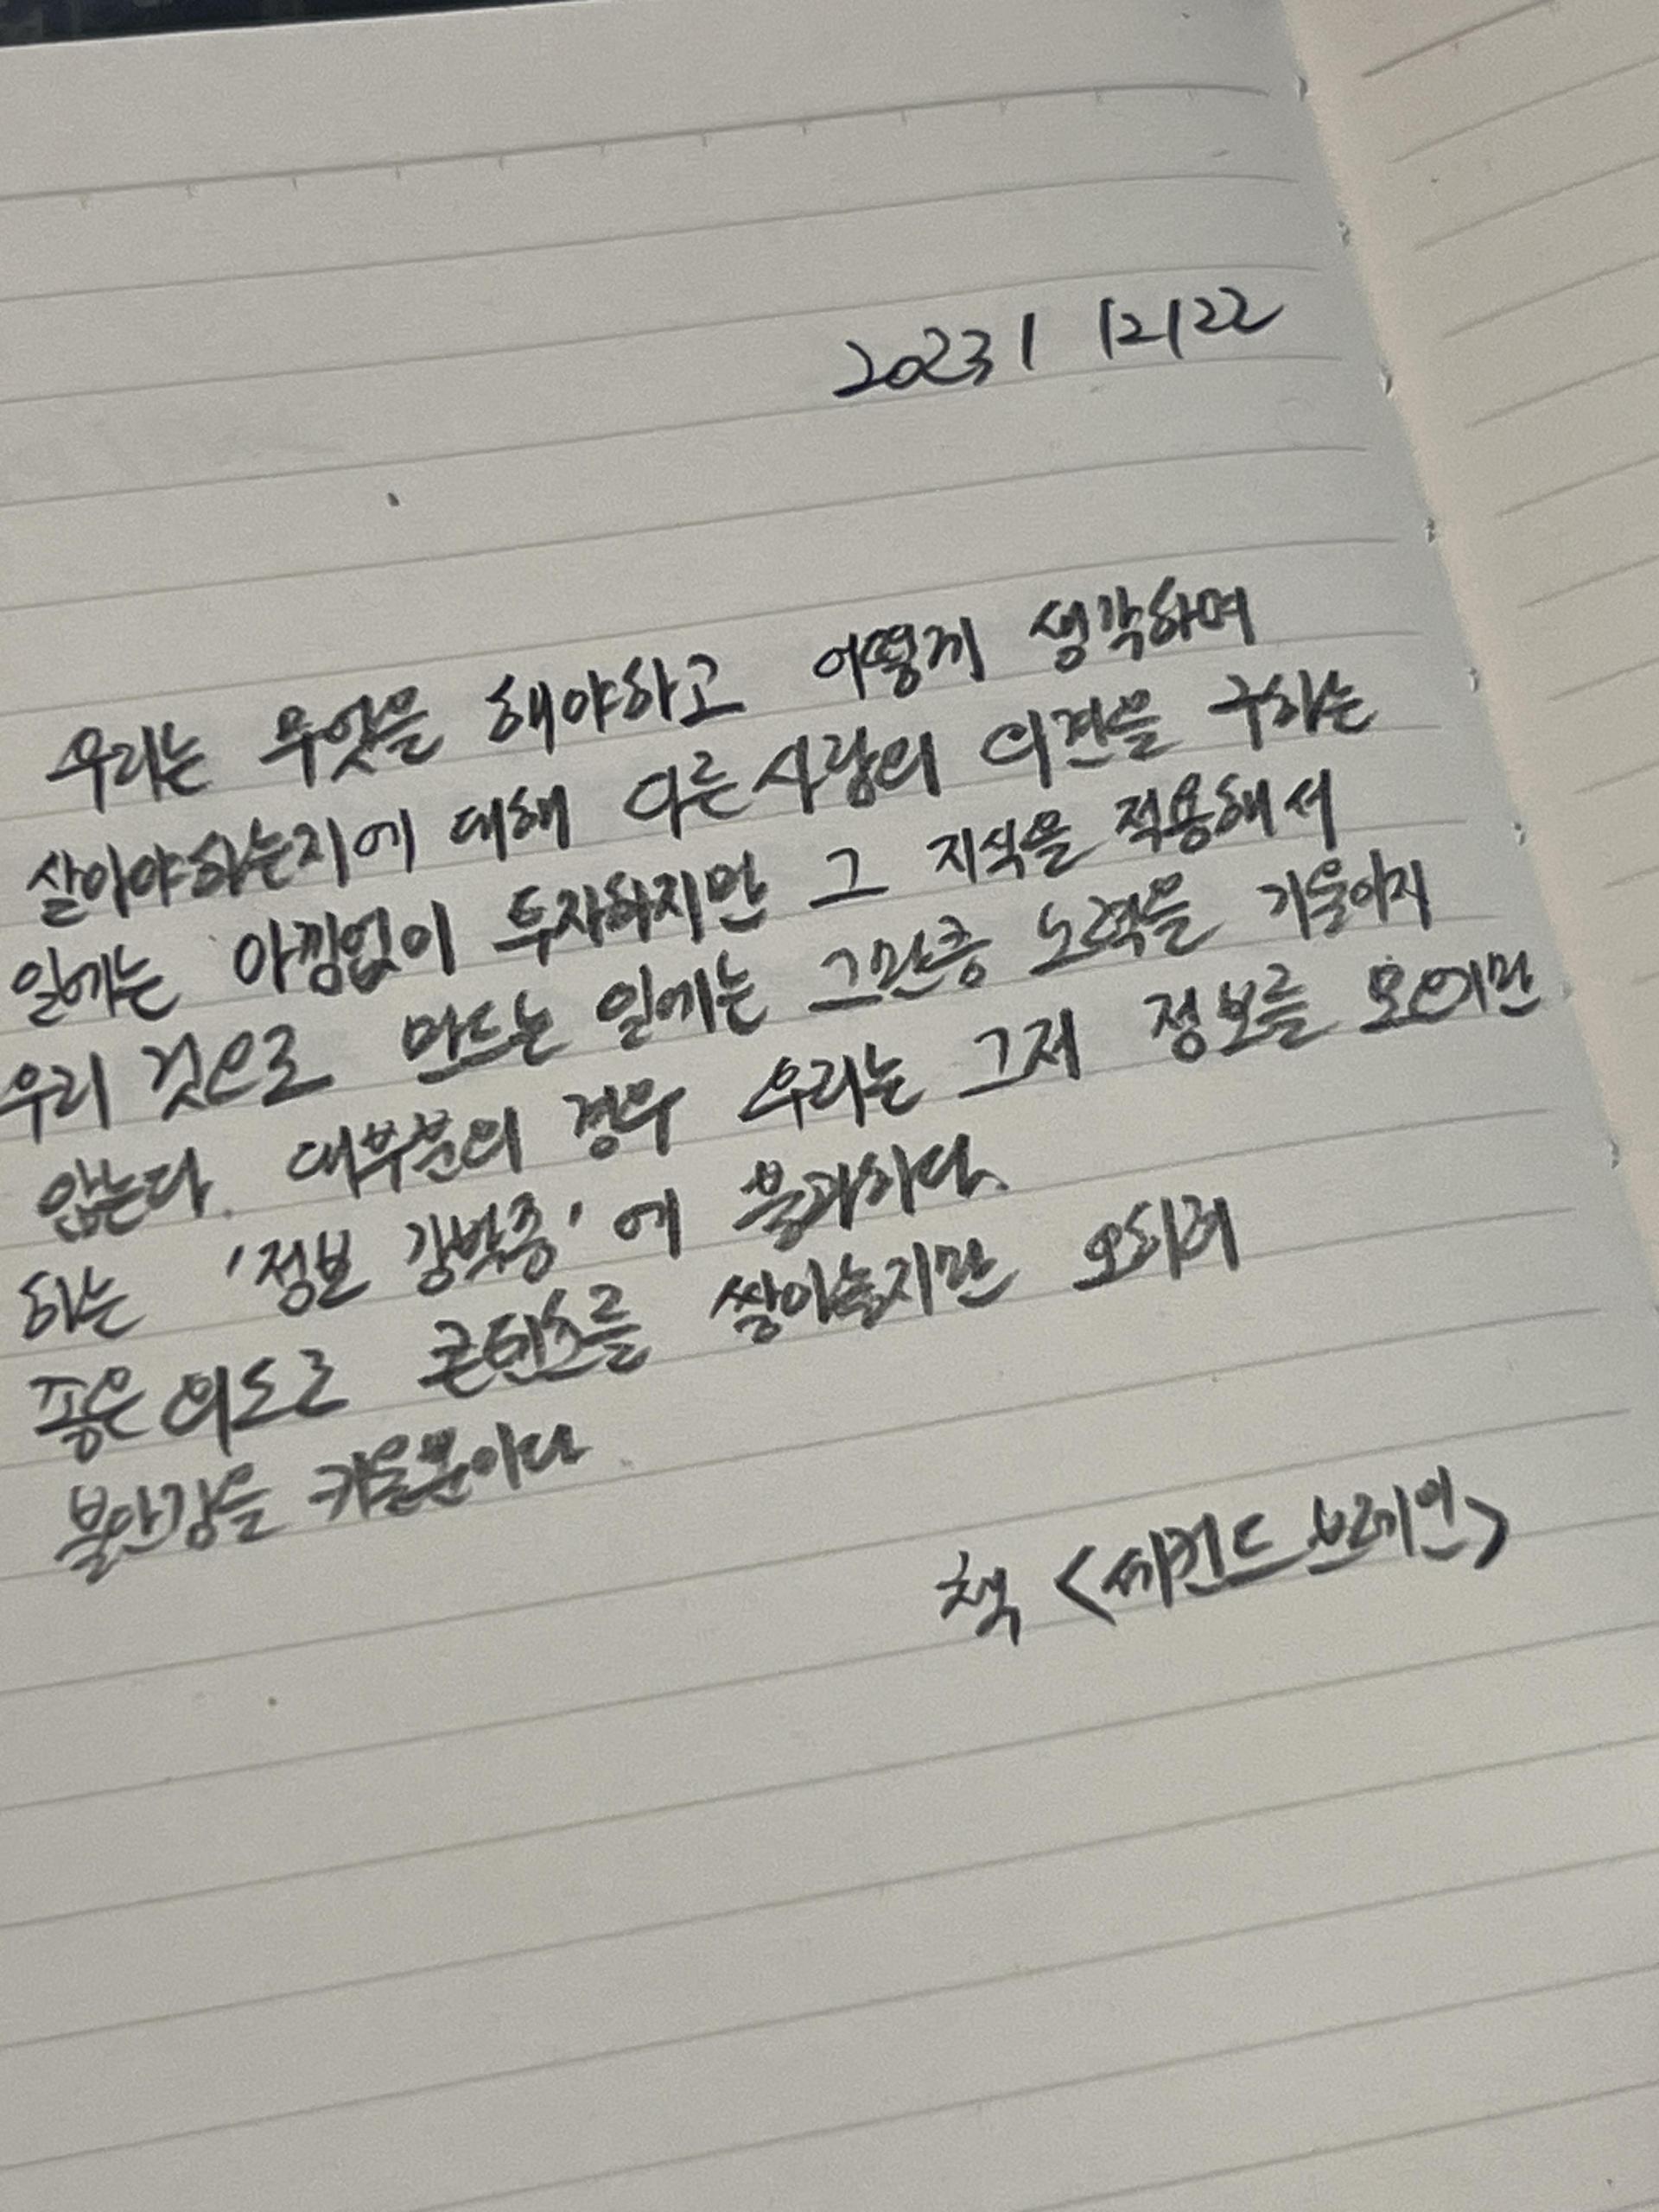 2023/ 12/22
우리는 무엇을 해야하고 어떻게 생각하며
살아야하는지에 대해 다른사람의 의견을 구하는
일에는 아낌없이 투자하지만 그 지식을 적용해서
우리 것으로 만드는 일에는 그만큼 노력을 기울이지
않는다. 대부분의 경우 우리는 그저 정보를 모으기만
하는 '정보 강박증'에 불과하다.
좋은 의도로 콘텐츠를 쌓아놓지만 오히려
불안감을 키울뿐이다
책 <세컨드 브레인>